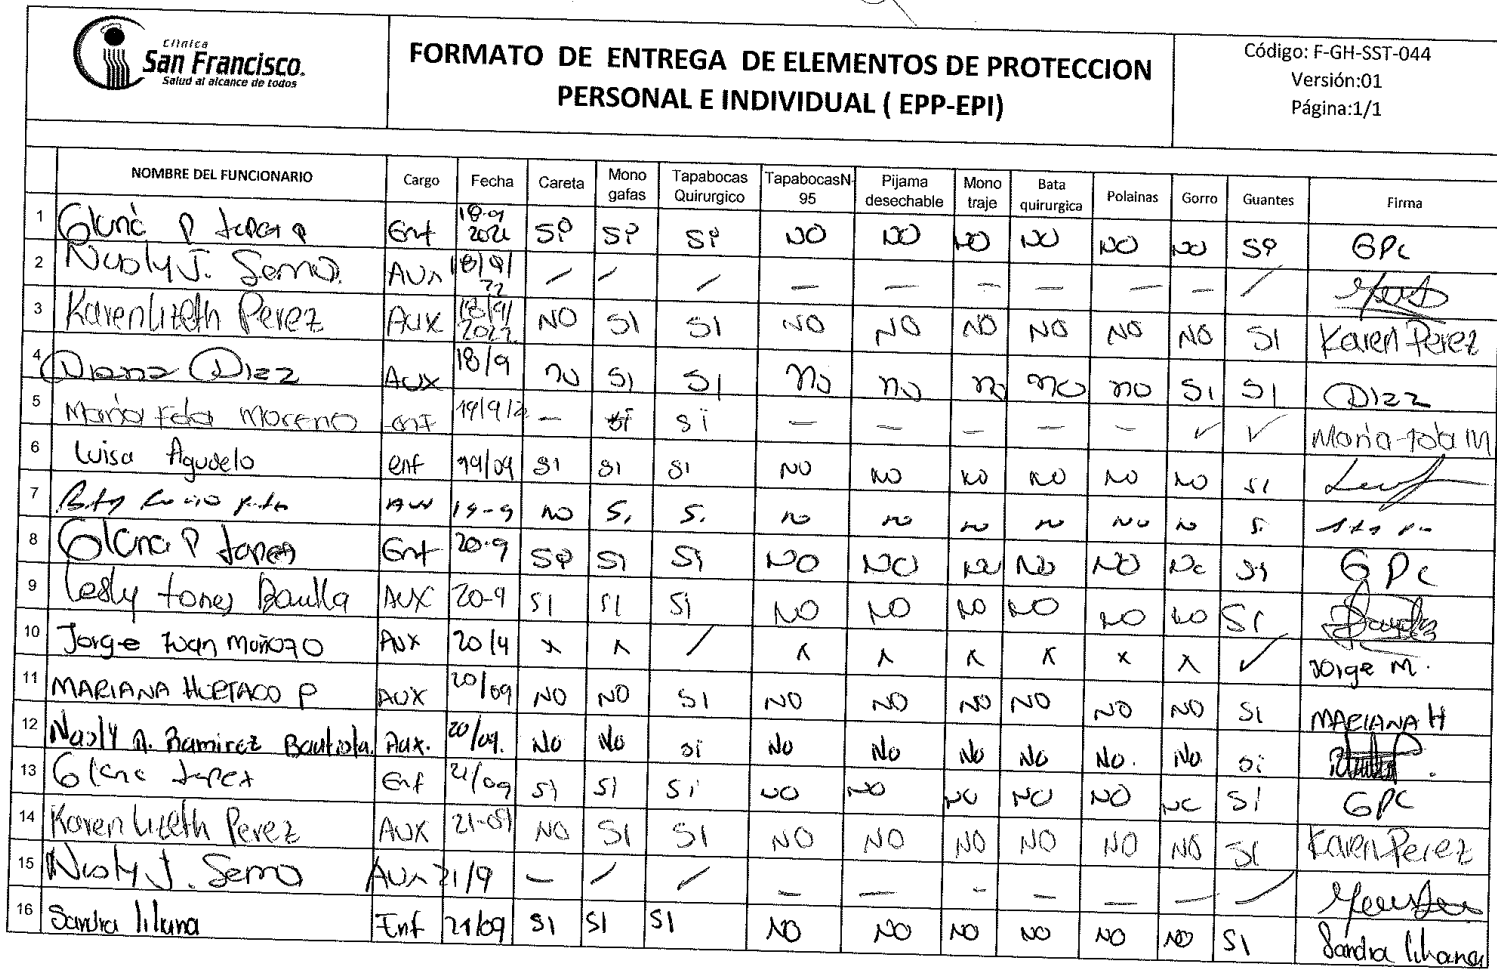 Clínica
San Francisco.
Salud al alcance de todos
FORMATO DE ENTREGA DE ELEMENTOS DE PROTECCION
PERSONAL E INDIVIDUAL ( EPP-EPI)
Código: F-GH-SST-044
Versión:01
Página:1/1
NOMBRE DEL FUNCIONARIO Cargo Fecha Careta Mono gafas Tapabocas Quirurgico TapabocasN-95 Pijama desechable Mono traje Bata quirurgica Polainas Gorro Guantes Firma
1 P Enf 18-9 SI SI SI NO NO NO NO NO NO SI GPC
2 J. Aux 18/9/22 / / / — — — — — — /
3 Karen Lizeth Perez Aux 18/9/2022 NO SI SI NO NO NO NO NO NO SI Karen Perez
4 Diana Diaz Aux 18/9 no SI SI no no no no no SI SI Diaz
5 Maria Fda Moreno enf 19/9/2 — SI — — — — — ✓ ✓ Maria Fda M
6 Luisa Agudelo enf 19/09 SI SI SI NO NO NO NO NO NO SI
7 Aux 19-9 no Si Si no no no no no no Si
8 P Enf 20-9 SI SI SI NO NO NO NO NO NO SI GPC
9 Lesly Aux 20-9 SI SI SI NO NO NO NO NO NO SI
10 Jorge Ivan Aux x x / x x x x x x ✓ Jorge M.
11 MARIANA HURTADO P AUX 20/09 NO NO SI NO NO NO NO NO NO SI MARIANA H
12 Nasly A. Ramirez Bautista. Aux. 20/09. No No Si No No No No No. No. Si
13 Enf 21/09 SI SI Si NO NO NO NO NO NO SI GPC
14 Karen Lizeth Perez AUX 21-09 NO SI SI NO NO NO NO NO NO SI Karen Perez
15 J. Aux 21/9 — / / — — — — — — /
16 Sandra liliana Enf 21/09 SI SI SI NO NO NO NO NO NO SI Sandra liliana